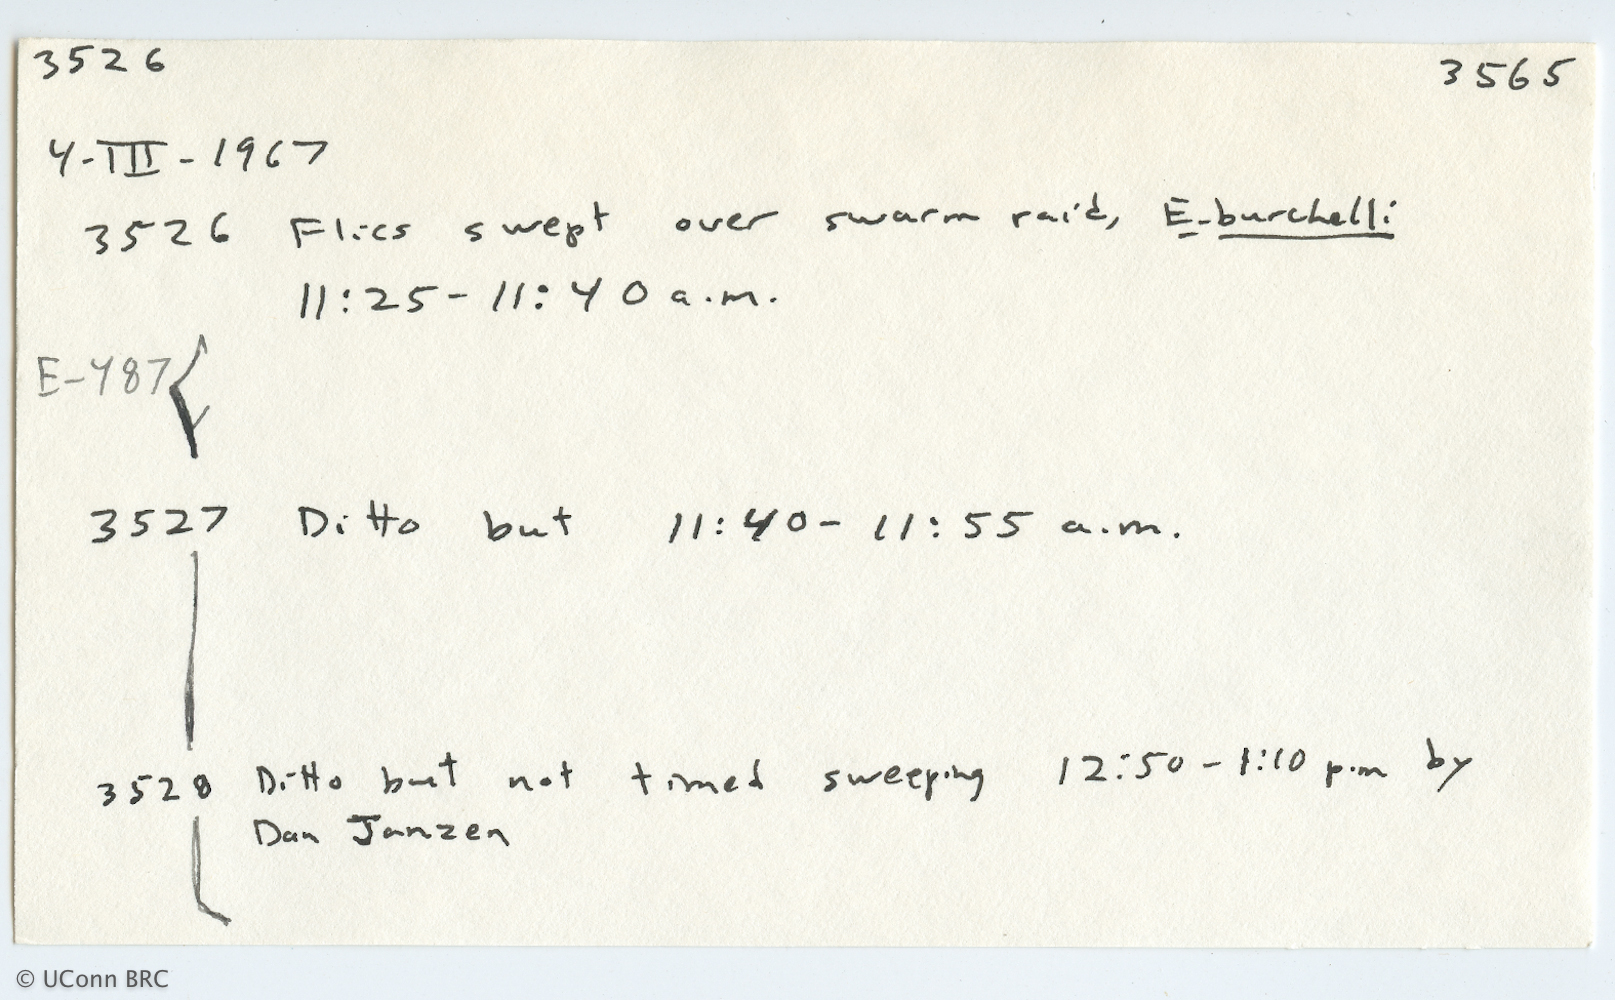 3526 3565
4-III-1967
3526 Flies swept over swarm raid, E. burchelli
11:25-11:40 a.m.
E-487
3527 Ditto but 11:40-11:55 a.m.
3528 Ditto but not timed sweeping 12:50-1:10 p.m by
Dan Janzen
© UConn BRC